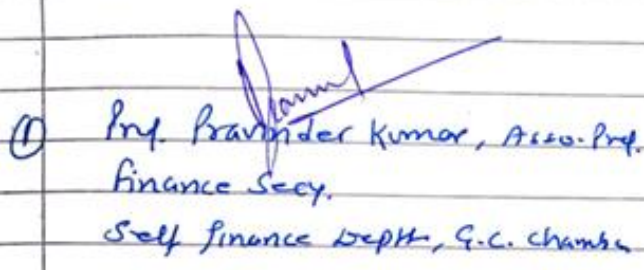 ① Prof. Pravinder Kumar, Asso. Prof.
Finance Secy.
Self finance Deptt, G.C. Chamba